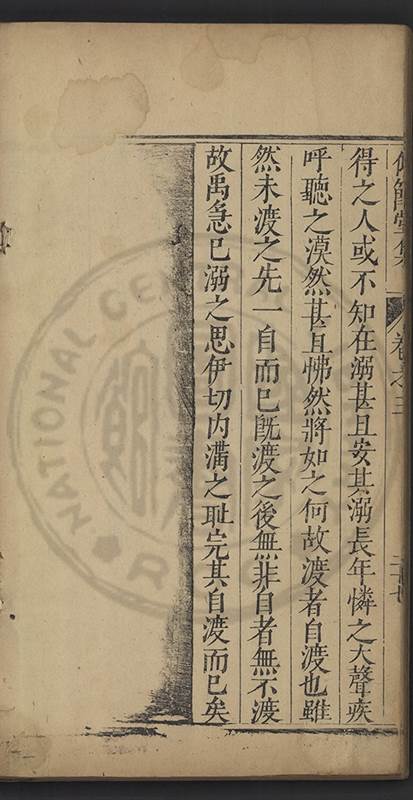 卷之三
得之人或不知在溺甚且安其溺長年憐之大聲疾
呼聽之漠然甚且怫然將如之何故渡者自渡也雖
然未渡之先一自而已旣渡之後無非自者無不渡
故禹急已溺之思伊切内溝之耻完其自渡而已矣
NATIONAL CENTRAL